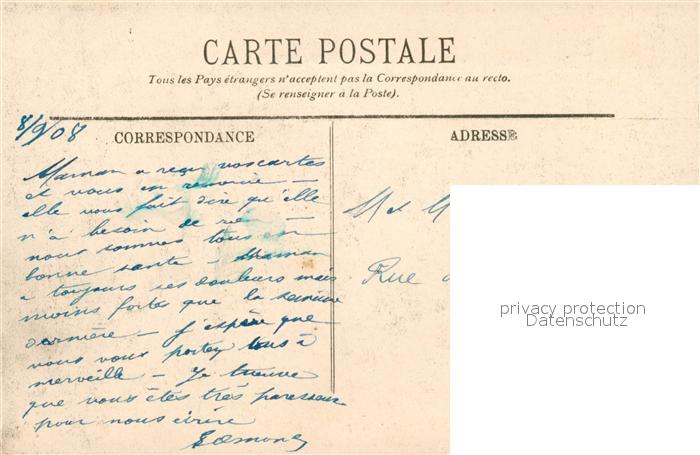 CARTE POSTALE
Tous les Pays étrangers n'acceptent pas la Correspondance au recto.
(Se renseigner à la Poste).
8/9/08
CORRESPONDANCE
ADRESSE
Maman a reçu vos cartes
et vous en remercie —
elle vous fait dire qu'elle
n'a besoin de rien —
nous sommes tous en
bonne santé — Maman
a toujours ses douleurs mais
moins fortes que la semaine
dernière — J'espère que
vous vous portez tous à
merveille — Je trouve
que vous êtes très paresseux
pour nous écrire
Edmond
M et M
Rue
privacy protection
Datenschutz